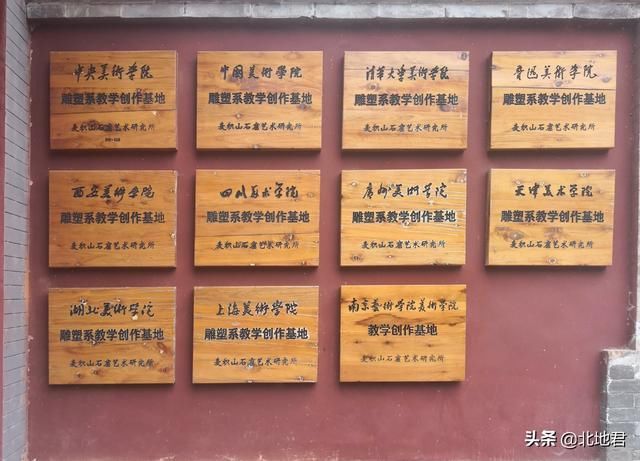 中央美術学院
雕塑系教学创作基地
麦积山石窟艺术研究所
中国美術学院
雕塑系教学创作基地
麦积山石窟艺术研究所
清华大学美術学院
雕塑系教学创作基地
麦积山石窟艺术研究所
鲁迅美術学院
雕塑系教学创作基地
麦积山石窟艺术研究所
西安美術学院
雕塑系教学创作基地
麦积山石窟艺术研究所
四川美术学院
雕塑系教学创作基地
麦积山石窟艺术研究所
广州美术学院
雕塑系教学创作基地
麦积山石窟艺术研究所
天津美术学院
雕塑系教学创作基地
麦积山石窟艺术研究所
湖北美術学院
雕塑系教学创作基地
麦积山石窟艺术研究所
上海美術學院
雕塑系教学创作基地
麦积山石窟艺术研究所
南京藝術学院美術学院
教学创作基地
麦积山石窟艺术研究所
头条 @北地君